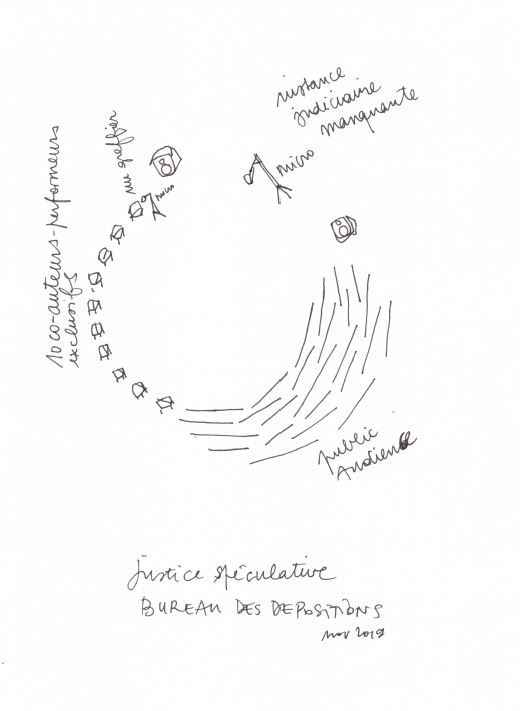 instance
judiciaire
manquante
greffier
micro
micro
10 co-auteurs-performeurs
exclusifs
public
Audience
justice spéculative
BUREAU DES DEPOSITIONS
nov 2019